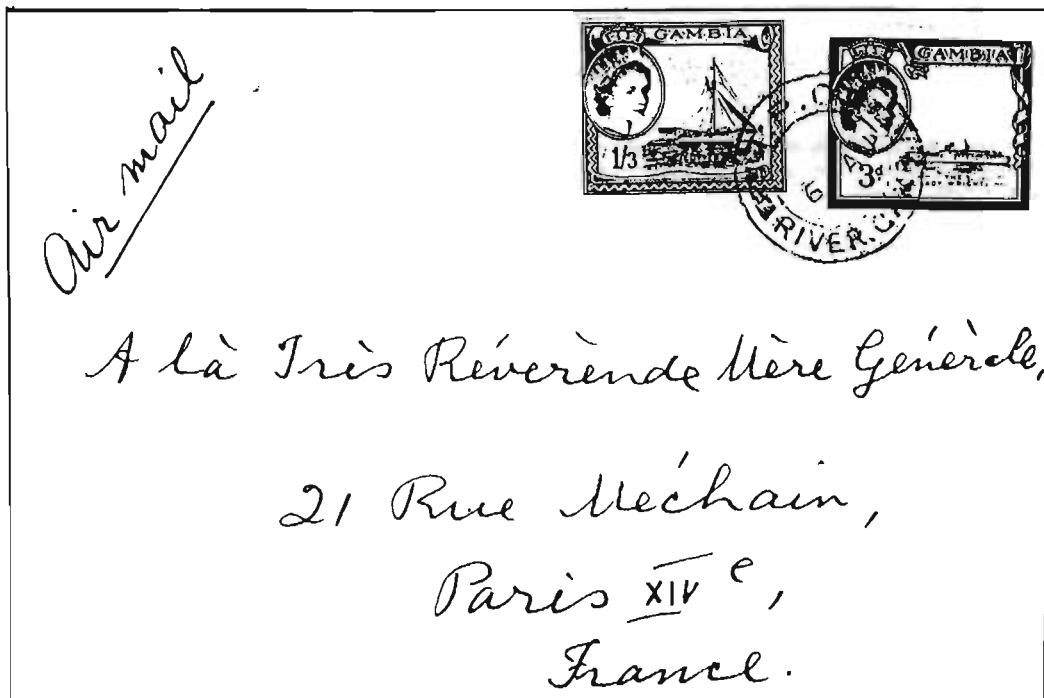 Air mail
GAMBIA
1/3
GAMBIA
3d
RIVER
A là Très Révèrènde Mère Génèrale,
21 Rue Méchain,
Paris XIV e,
France.